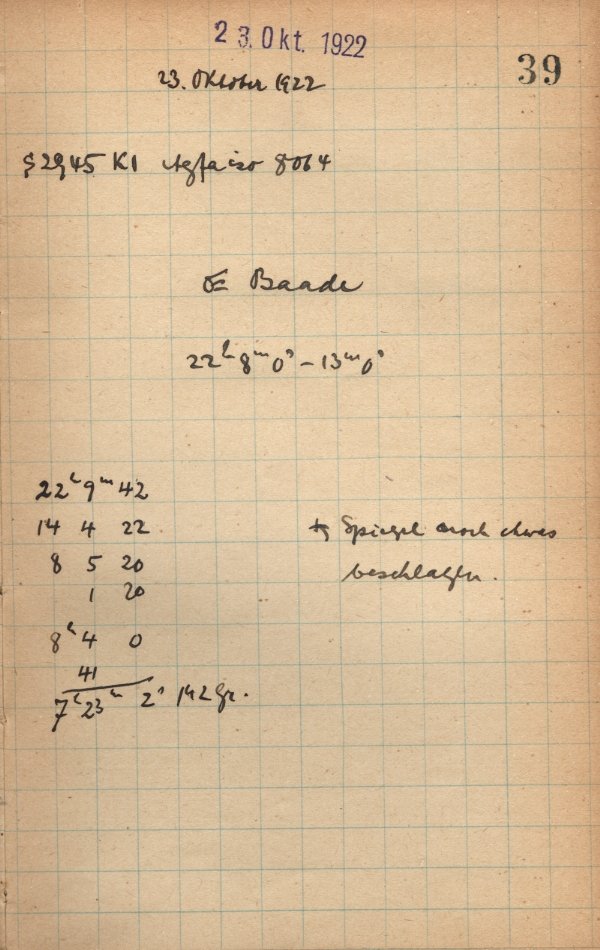 23. Okt. 1922
39
23. Oktober 1922
S 2945 K1 Agfa iso 8064
Baade
22ʰ 8ᵐ 0ˢ – 13ᵐ 0ˢ
22ʰ 9ᵐ 42
14 4 22
8 5 20
1 20
8ʰ 4 0
41
7ʰ 23ᵐ 2ˢ
Spiegel noch etwas
beschlagen.